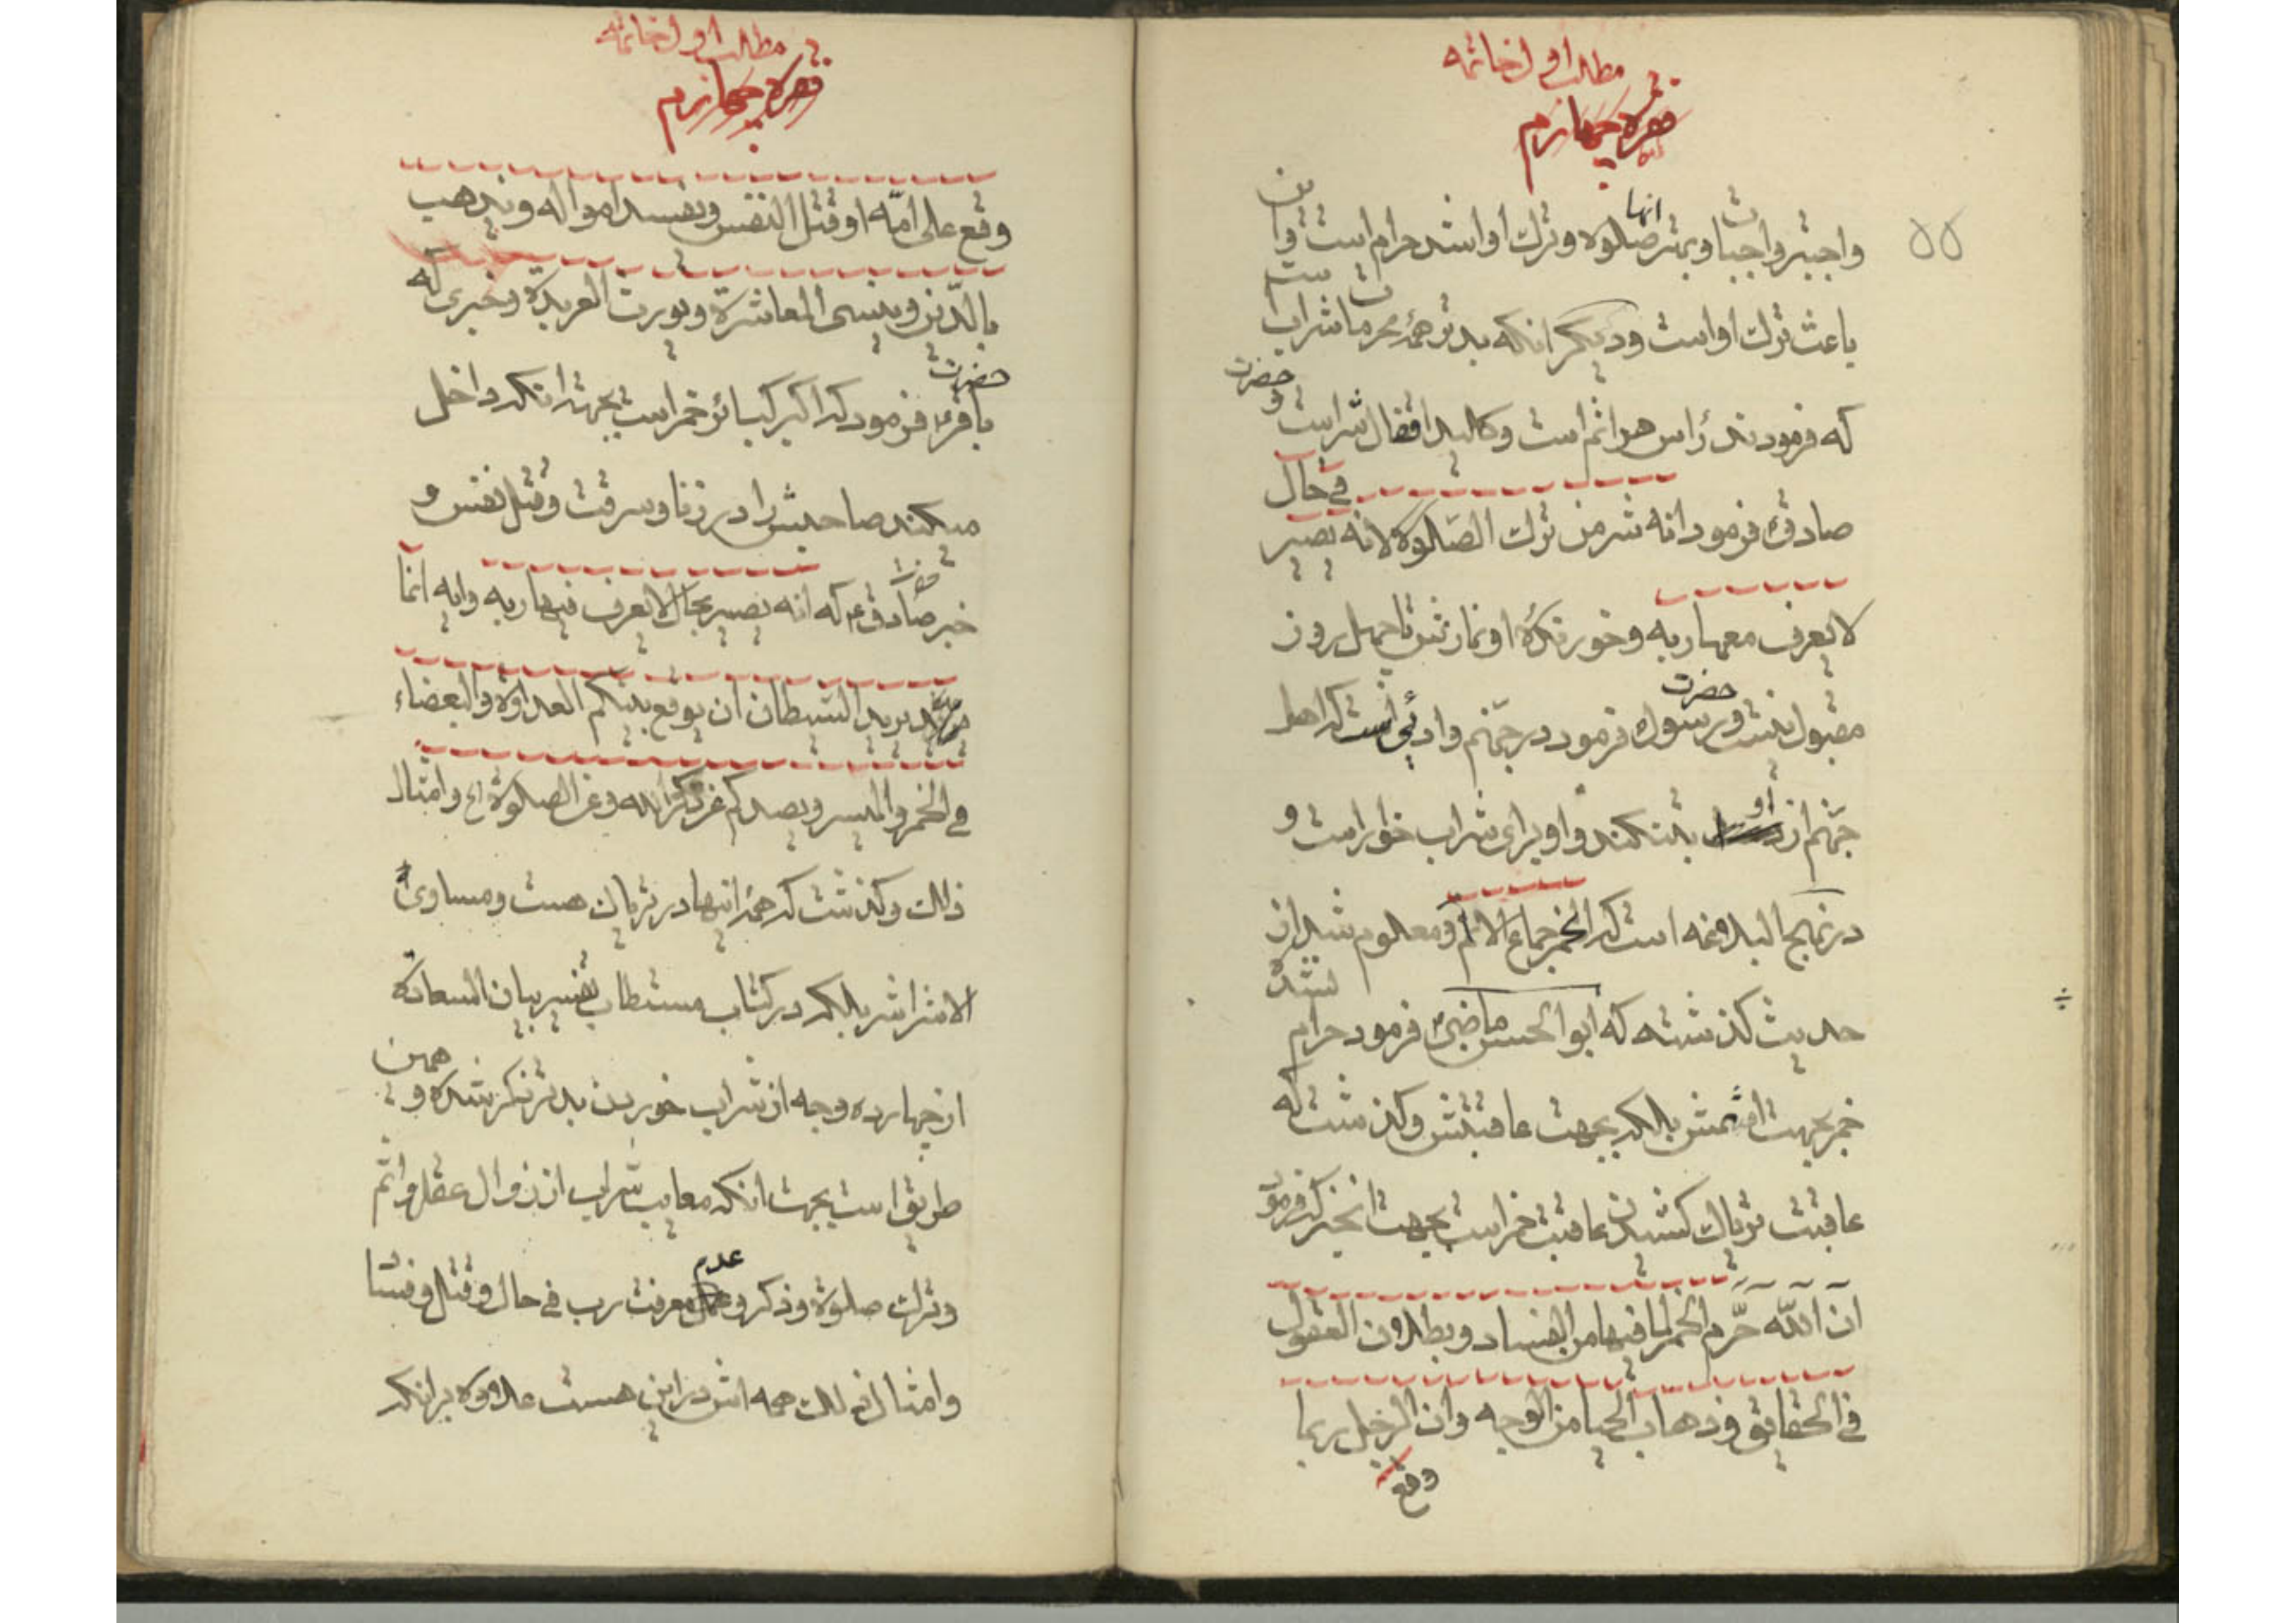 مطلب اول خاتمه
فقره چهارم
۵۵
واجبتر واجبات و بهتر آنها صلوة و ترک او اشد حرام است و این
باعث ترک او است و دیگر آنکه بدتر همه محرمات شراب است
که فرمودند رأس هر اثم است و کالید اقفال شر است و حضرت
صادق فرمود انه شر من ترک الصلوة لانه یصیر فی حال
لا یعرف معها ربه و خورنده او نمازش تا چهل روز
مقبول نیست و حضرت رسول فرمود در جهنم وادئی است که اهل
جهنم از او بتنکند و او برای شراب خوار است و
در نهج البلاغه است که الخمر جماع الاثم و معلوم شد از
حدیث گذشته که ابو الحسن ماضی فرمود حرام نشده
خمر بجهت اسمش بلکه بجهت عاقبتش و گذشت که
عاقبت تریاک کشیدن عاقبت خمر است بجهت آنخبر که فرمود
ان الله حرم الخمر لما فیها من الفساد و بطلان العقول
فی الحقایق و ذهاب الحیا من الوجه و ان الرجل ربما
وقع
مطلب اول خاتمه
فقره چهارم
وقع علی امّه او قتل النفس و یفسد امواله و یذهب
بالدّین و یسی المعاشرة و یورث العربدة و خبری که
حضرت باقر فرمود که اکبر کبائر خمر است بجهت آنکه داخل
میکند صاحبش را در زنا و سرقت و قتل نفس و
خبر حضرت صادق ع که انه یصیر بحال لا یعرف فیها ربه و ایه انما
یرید الشیطان ان یوقع بینکم العداوة و البغضاء
فی الخمر و المیسر و یصدکم عن ذکر الله و عن الصلوة الخ و امثال
ذلک و گذشت که همه اینها در تریاک هست و مساوی
الاشر اشر بلکه در کتاب مستطاب تفسیر بیان السعادة
از چهارده وجه از شراب خوردن بدتر ذکر شده و همین
طریق است بجهت آنکه معایب شراب از زوال عقل و اثم
و ترک صلوة و ذکر و عدم معرفت رب فی حال و قتل و فساد
و امثال ذلک همه اش در این هست علاوه بر آنکه